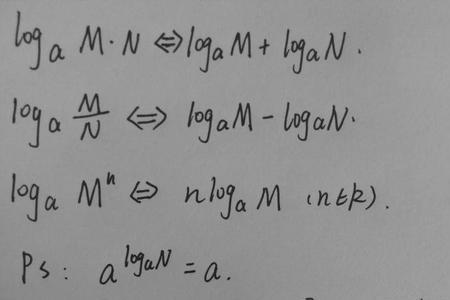 logₐ M·N ⇔ logₐM + logₐN.
logₐ M/N ⇔ logₐM − logₐN.
logₐ Mⁿ ⇔ nlogₐM (n∈k).
Ps: a^(logₐN) = a.